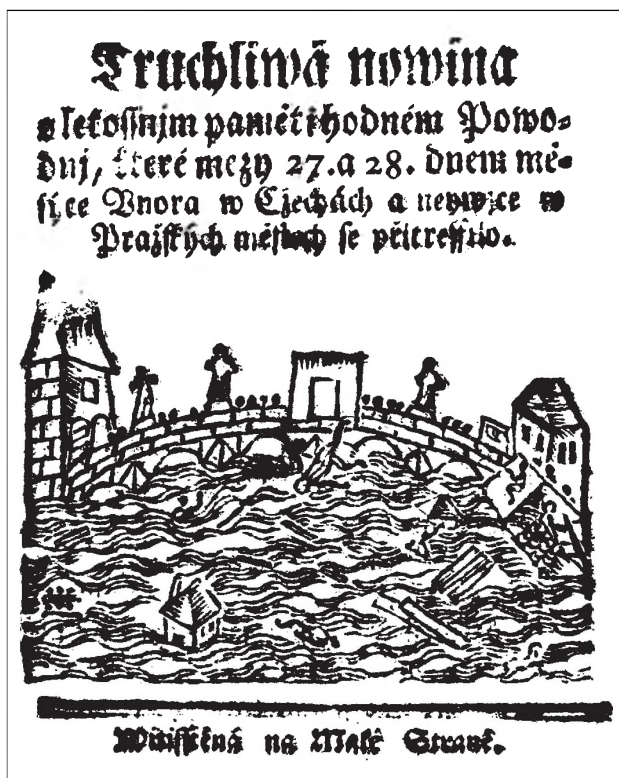 Truchliwá nowina
o letossnjm pamětihodném Powo-
dnj, které mezy 27. a 28. dnem mě-
sýce Vnora w Czechách a neywjce w
Pražských městech se přitrefilo.
Witisstěná na Malé Straně.